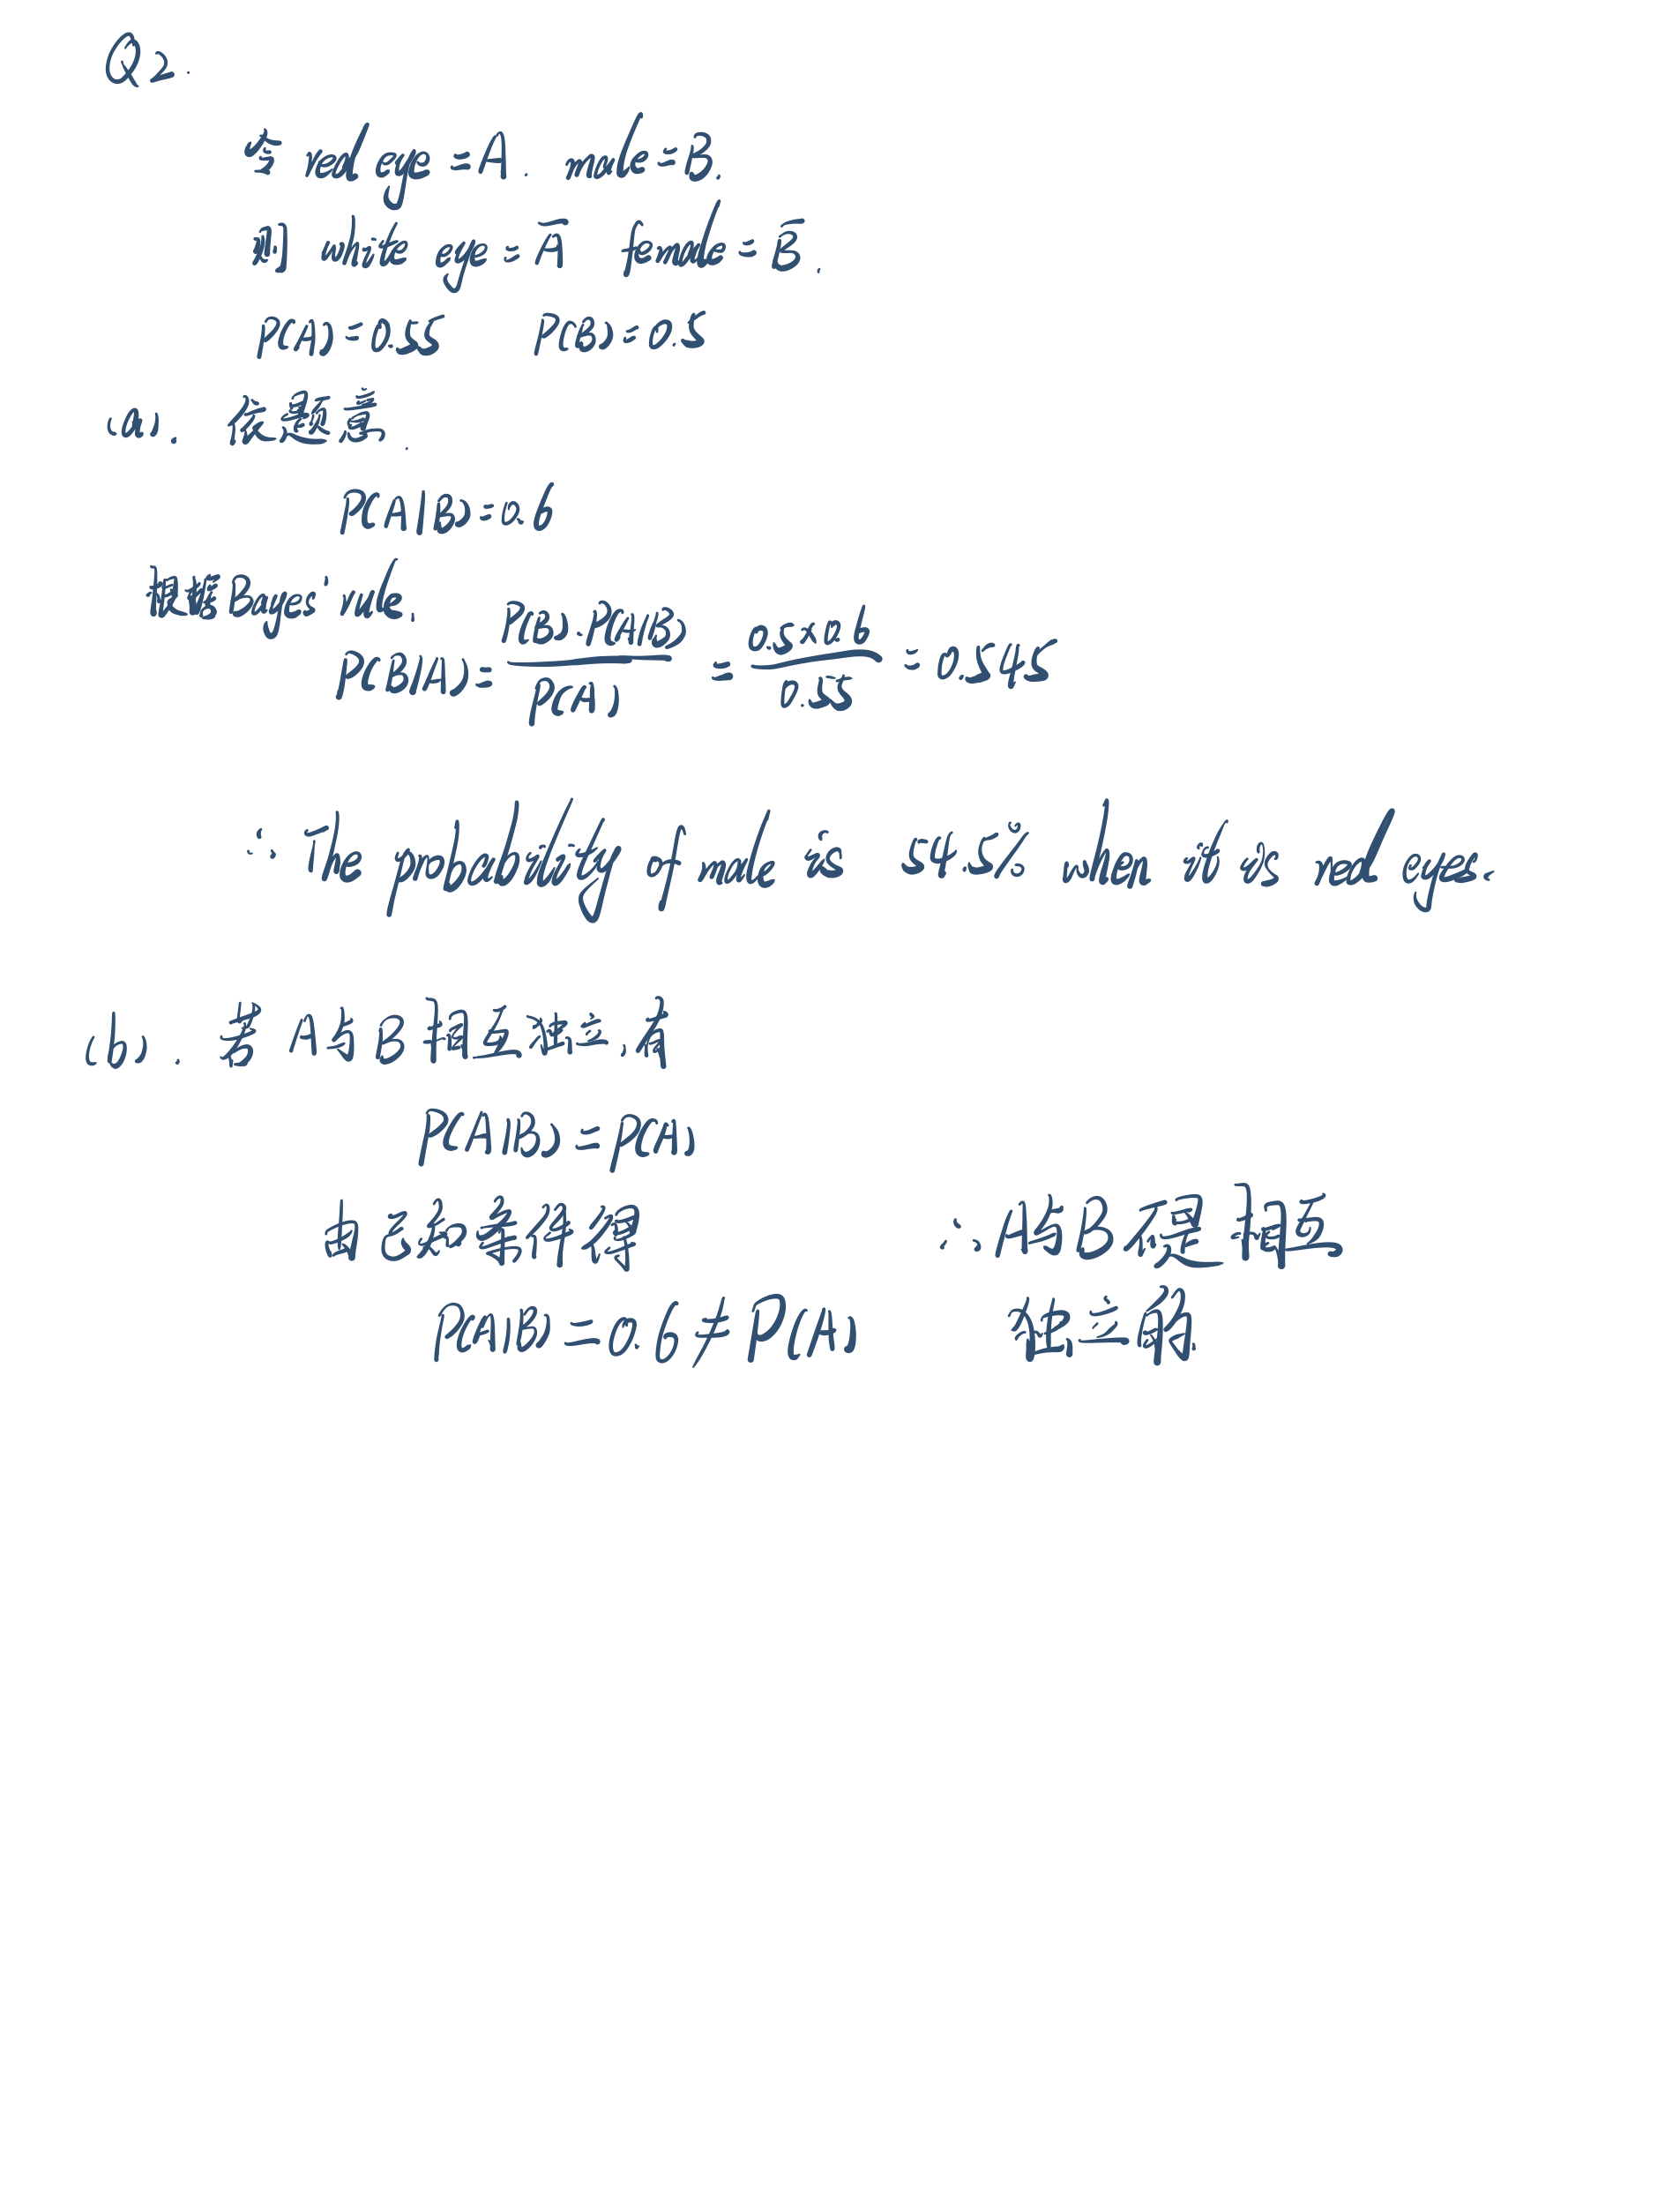 Q2.
令 red eye = A. male = B.
则 white eye = Ā female = B̄.
P(A) = 0.55 P(B) = 0.5
(a). 依题意.
P(A|B) = 0.6
根据 Bayes' rule.
P(B|A) = P(B)·P(A|B) / P(A) = 0.5×0.6 / 0.55 = 0.545
∴ The probability of male is 54.5% when it is red eyes.
(b). 若 A与B相互独立,有
P(A|B) = P(A)
由已知条件得
P(A|B) = 0.6 ≠ P(A)
∴ A与B不是相互
独立的.